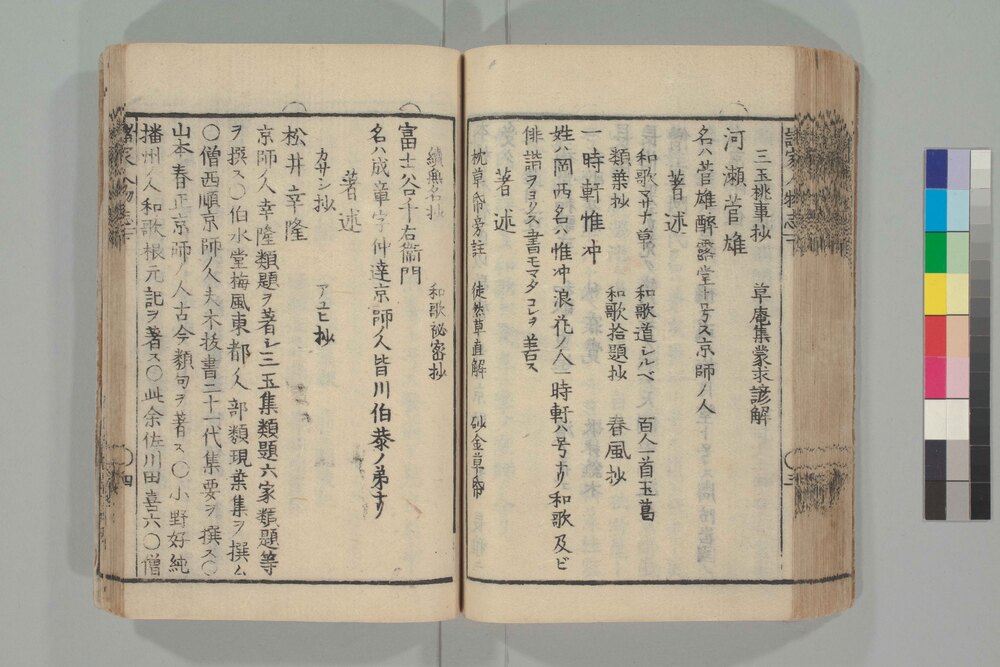 諸家人物志下
三玉桃事抄　草庵集蒙求諺解
河瀬菅雄
名ハ菅雄酔露堂ト号ス京師ノ人
著述
和歌マサナ草　和歌道シルベ　百人一首玉葛
類葉抄　和歌拾題抄　春風抄
一時軒惟冲
姓ハ岡西名ハ惟冲浪花ノ人一時軒ハ号ナリ和歌及ビ
俳諧ヲヨクス書モマタコレヲ善ス
著述
枕草帋旁註　徒然草直解　砂金草帋
続無名抄　和歌秘密抄
富士谷千右衛門
名ハ成章字仲達京師ノ人皆川伯恭ノ弟ナリ
著述
カザシ抄　アユヒ抄
松井幸隆
京師ノ人幸隆類題ヲ著シ三玉集類題六家類題等
ヲ撰ス〇伯水堂梅風東都ノ人部類現葉集ヲ撰ム
〇僧西順京師ノ人夫木抜書二十一代集要ヲ撰ス〇
山本春正京師ノ人古今類句ヲ著ス〇小野好純
播州ノ人和歌根元記ヲ著ス〇此余佐川田喜六〇僧
諸家人物志下
四